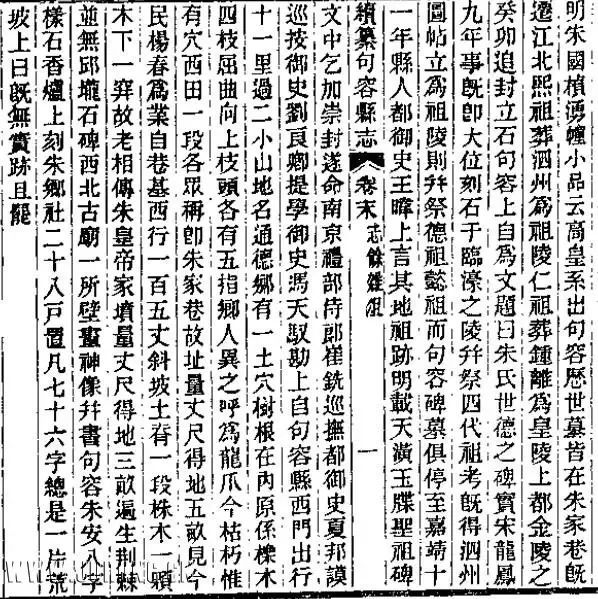 明朱國楨湧幢小品云高皇系出句容歷世墓皆在朱家巷旣
遷江北熙祖葬泗州為祖陵仁祖葬鍾離為皇陵上都金陵之
癸卯追封立石句容上自為文題曰朱氏世德之碑實宋龍鳳
九年事旣卽大位刻石于臨濠之陵幷祭四代祖考旣得泗州
圖帖立為祖陵則幷祭德祖懿祖而句容碑墓俱停至嘉靖十
一年縣人都御史王暐上言其地祖跡明載天潢玉牒聖祖碑
續纂句容縣志 卷末 志餘雜俎 一
文中乞加崇封遂命南京禮部侍郎崔銑巡撫都御史夏邦謨
巡按御史劉良卿提學御史馮天馭勘上自句容縣西門出行
十一里過二小山地名通德鄉有一土穴樹根在內原係櫟木
四枝屈曲向上枝頭各有五指鄉人異之呼為龍爪今枯朽惟
有穴西田一段各眾稱卽朱家巷故址量丈尺得地五畝見今
民楊春為業自巷基西行一百五丈斜坡土脊一段株木一顆
木下一穽故老相傳朱皇帝家墳量丈尺得地三畝遍生荆棘
並無邱壠石碑西北古廟一所壁畫神像幷書句容朱安八字
樣石香爐上刻朱鄉社二十八戶置凡七十六字總是一片荒
坡上曰旣無實跡且罷